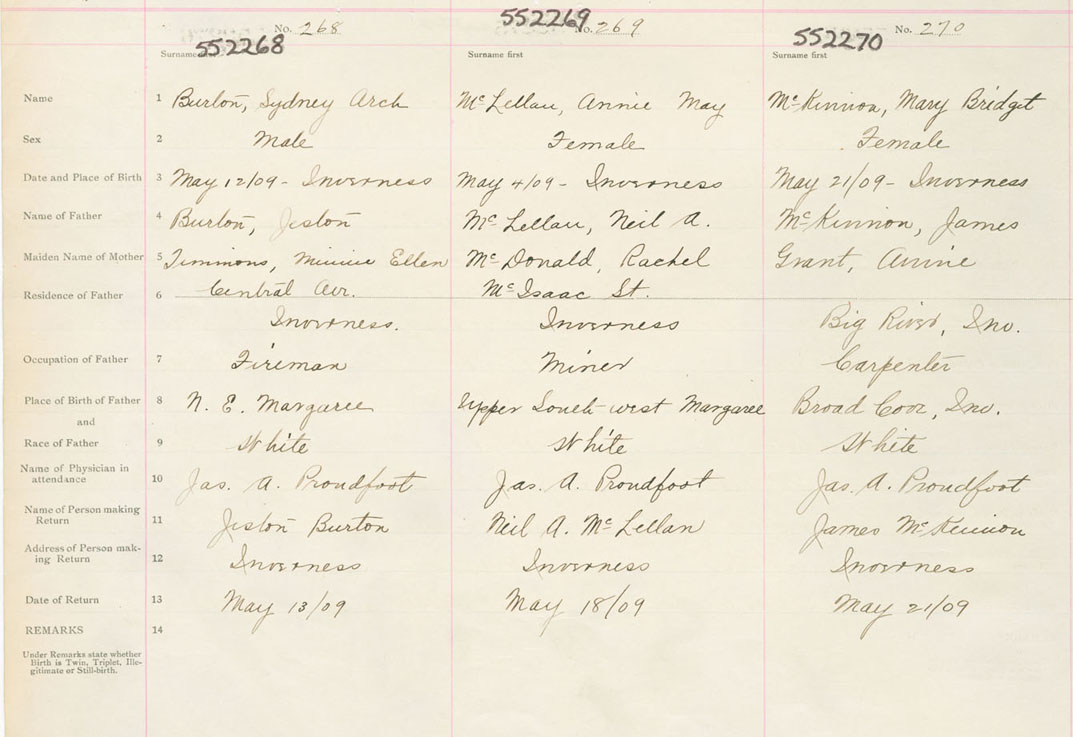 No. 268 552269 No. 269 No. 270
552268 552270
Surname first Surname first Surname first
Name 1 Burton, Sydney Arch McLellan, Annie May McKinnon, Mary Bridget
Sex 2 Male Female Female
Date and Place of Birth 3 May 12/09 - Inverness May 4/09 - Inverness May 21/09 - Inverness
Name of Father 4 Burton, McLellan, Neil A. McKinnon, James
Maiden Name of Mother 5 Timmons, Minnie Ellen McDonald, Rachel Grant, Annie
Central Av. McIsaac St.
Residence of Father 6 Inverness. Inverness Big River, Inv.
Occupation of Father 7 Fireman Miner Carpenter
Place of Birth of Father 8 N. E. Margaree Upper South-west Margaree Broad Cove, Inv.
and
Race of Father 9 White White White
Name of Physician in attendance 10 Jas. A. Proudfoot Jas. A. Proudfoot Jas. A. Proudfoot
Name of Person making Return 11 Burton Neil A. McLellan James McKinnon
Address of Person making Return 12 Inverness Inverness Inverness
Date of Return 13 May 13/09 May 18/09 May 21/09
REMARKS 14
Under Remarks state whether
Birth is Twin, Triplet, Ille-
gitimate or Still-birth.